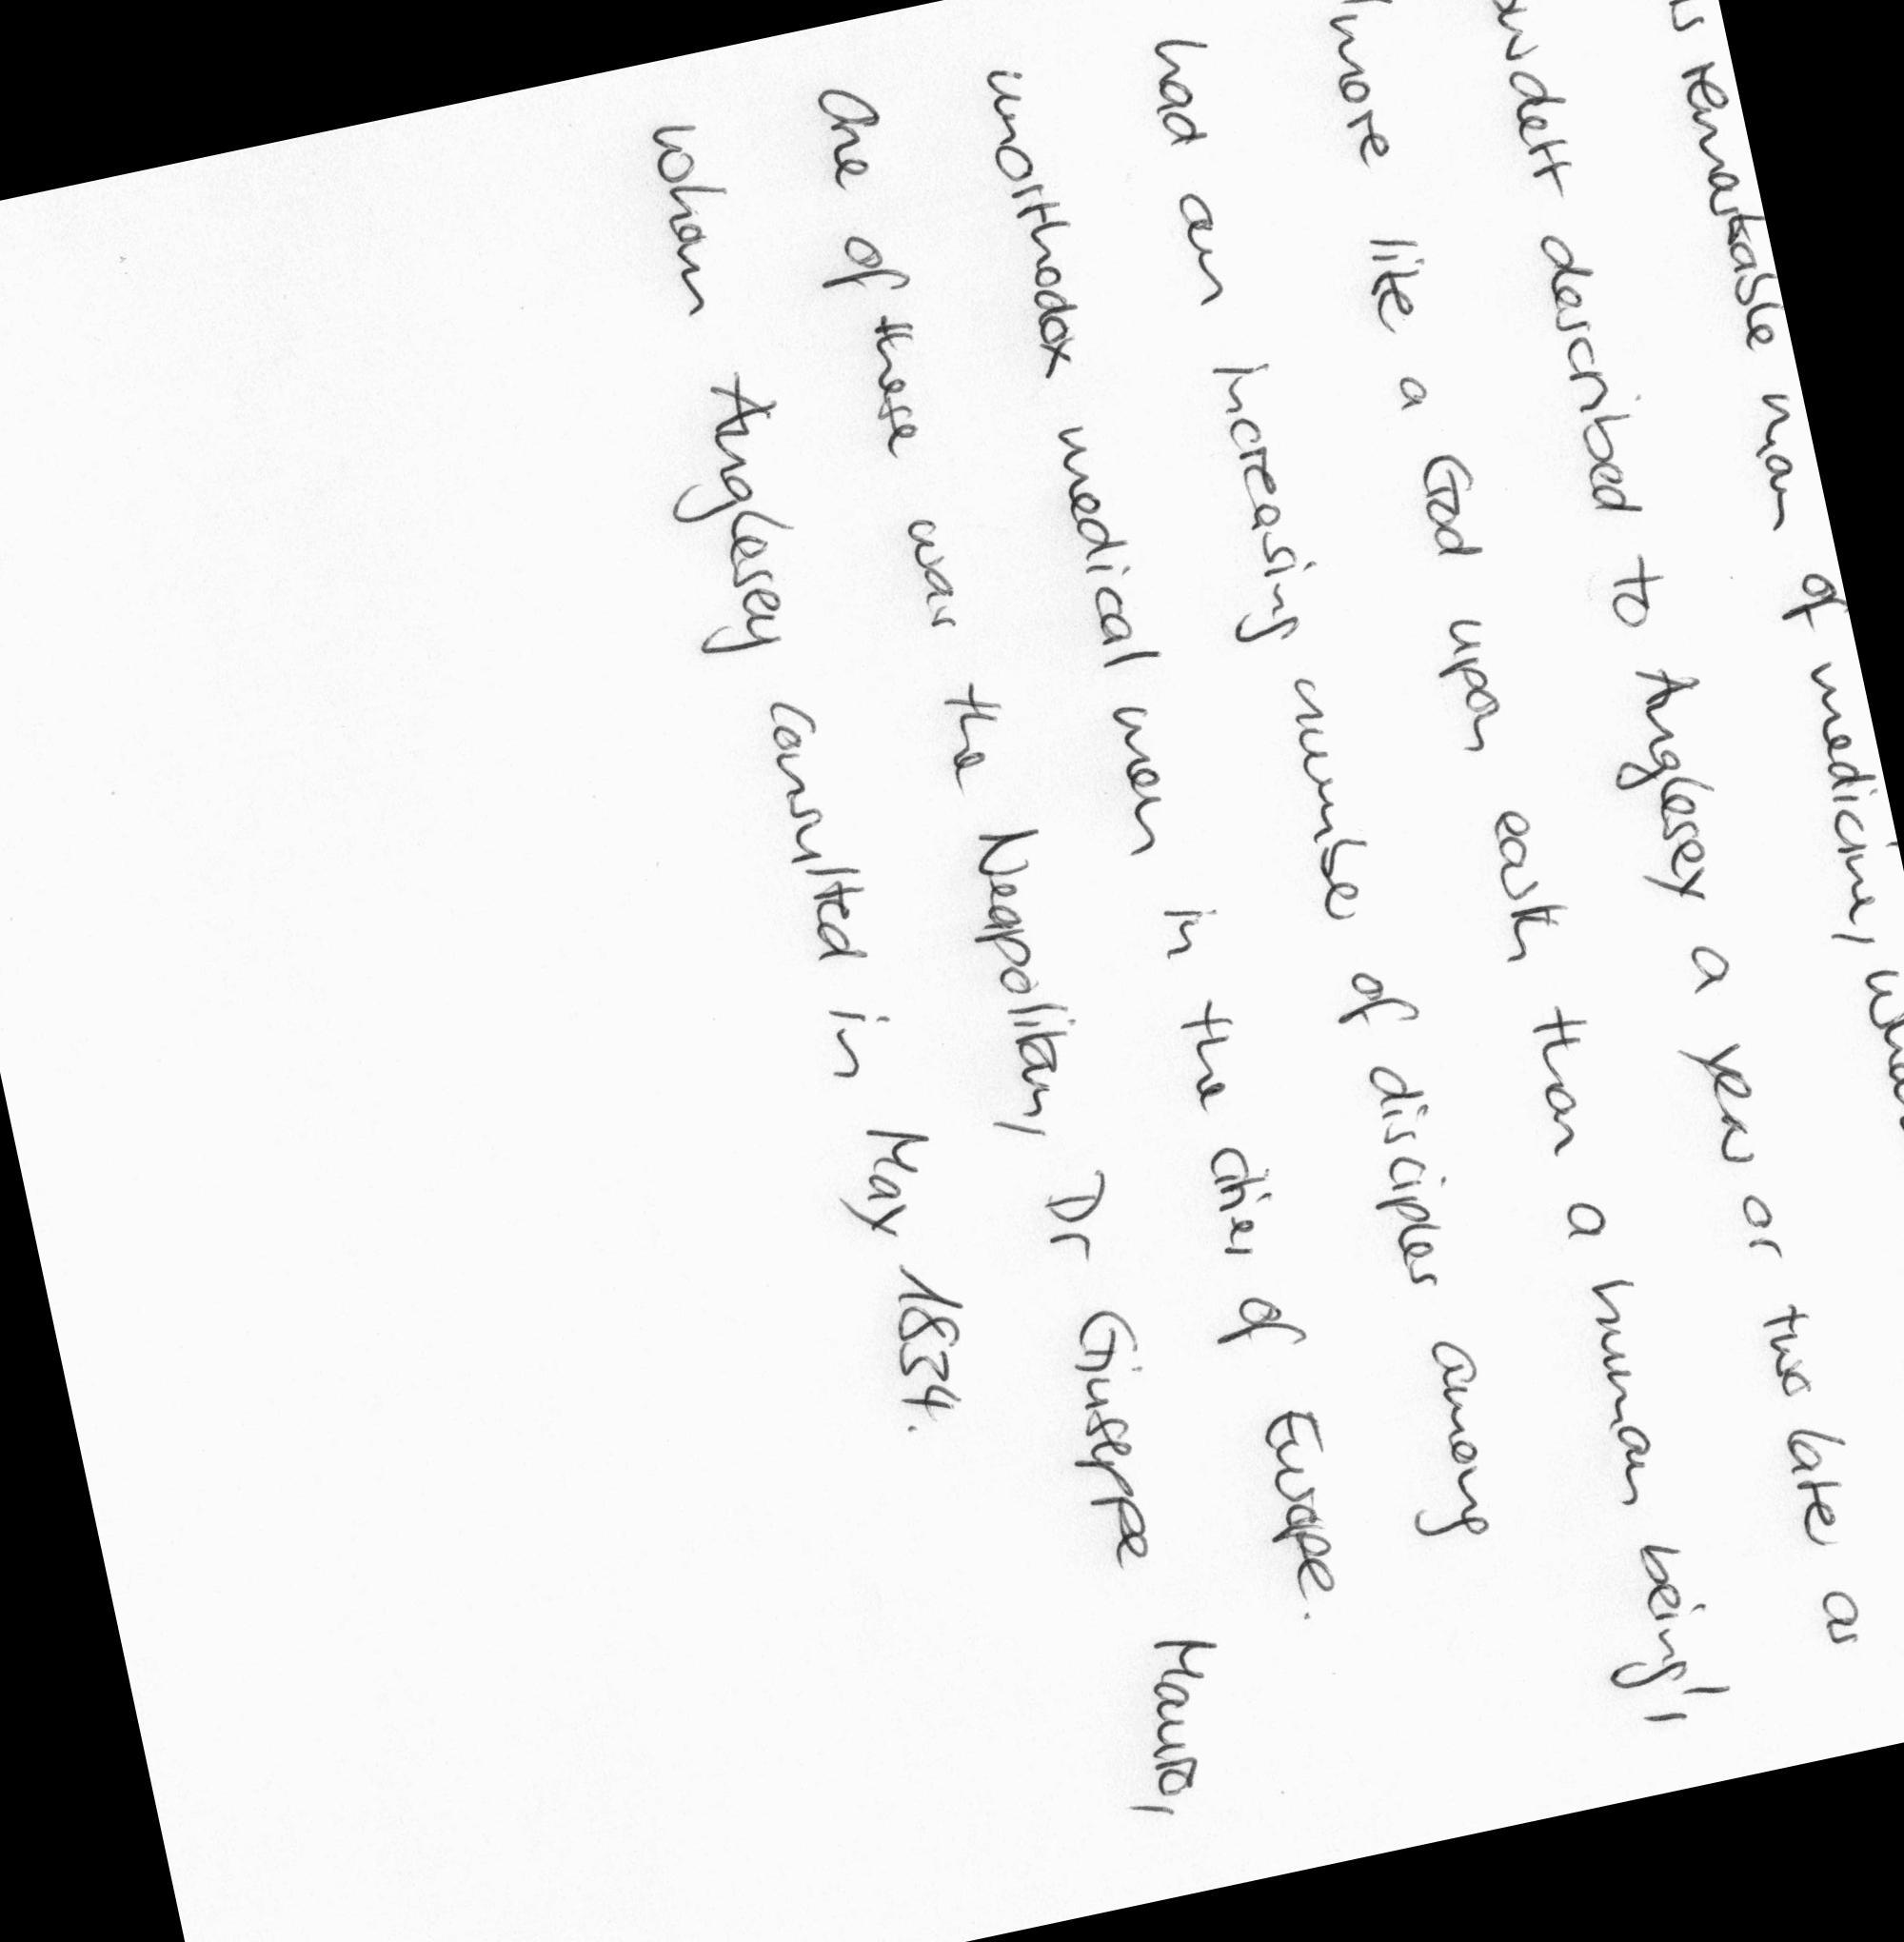 remarkable man of medicine,
described to Anglesey a year or two later as
more like a God upon earth than a human being',
had an increasing number of disciples among
unorthodox medical men in the cities of Europe.
One of these was the Neapolitan, Dr Giuseppe Mauro,
whom Anglesey consulted in May 1834.